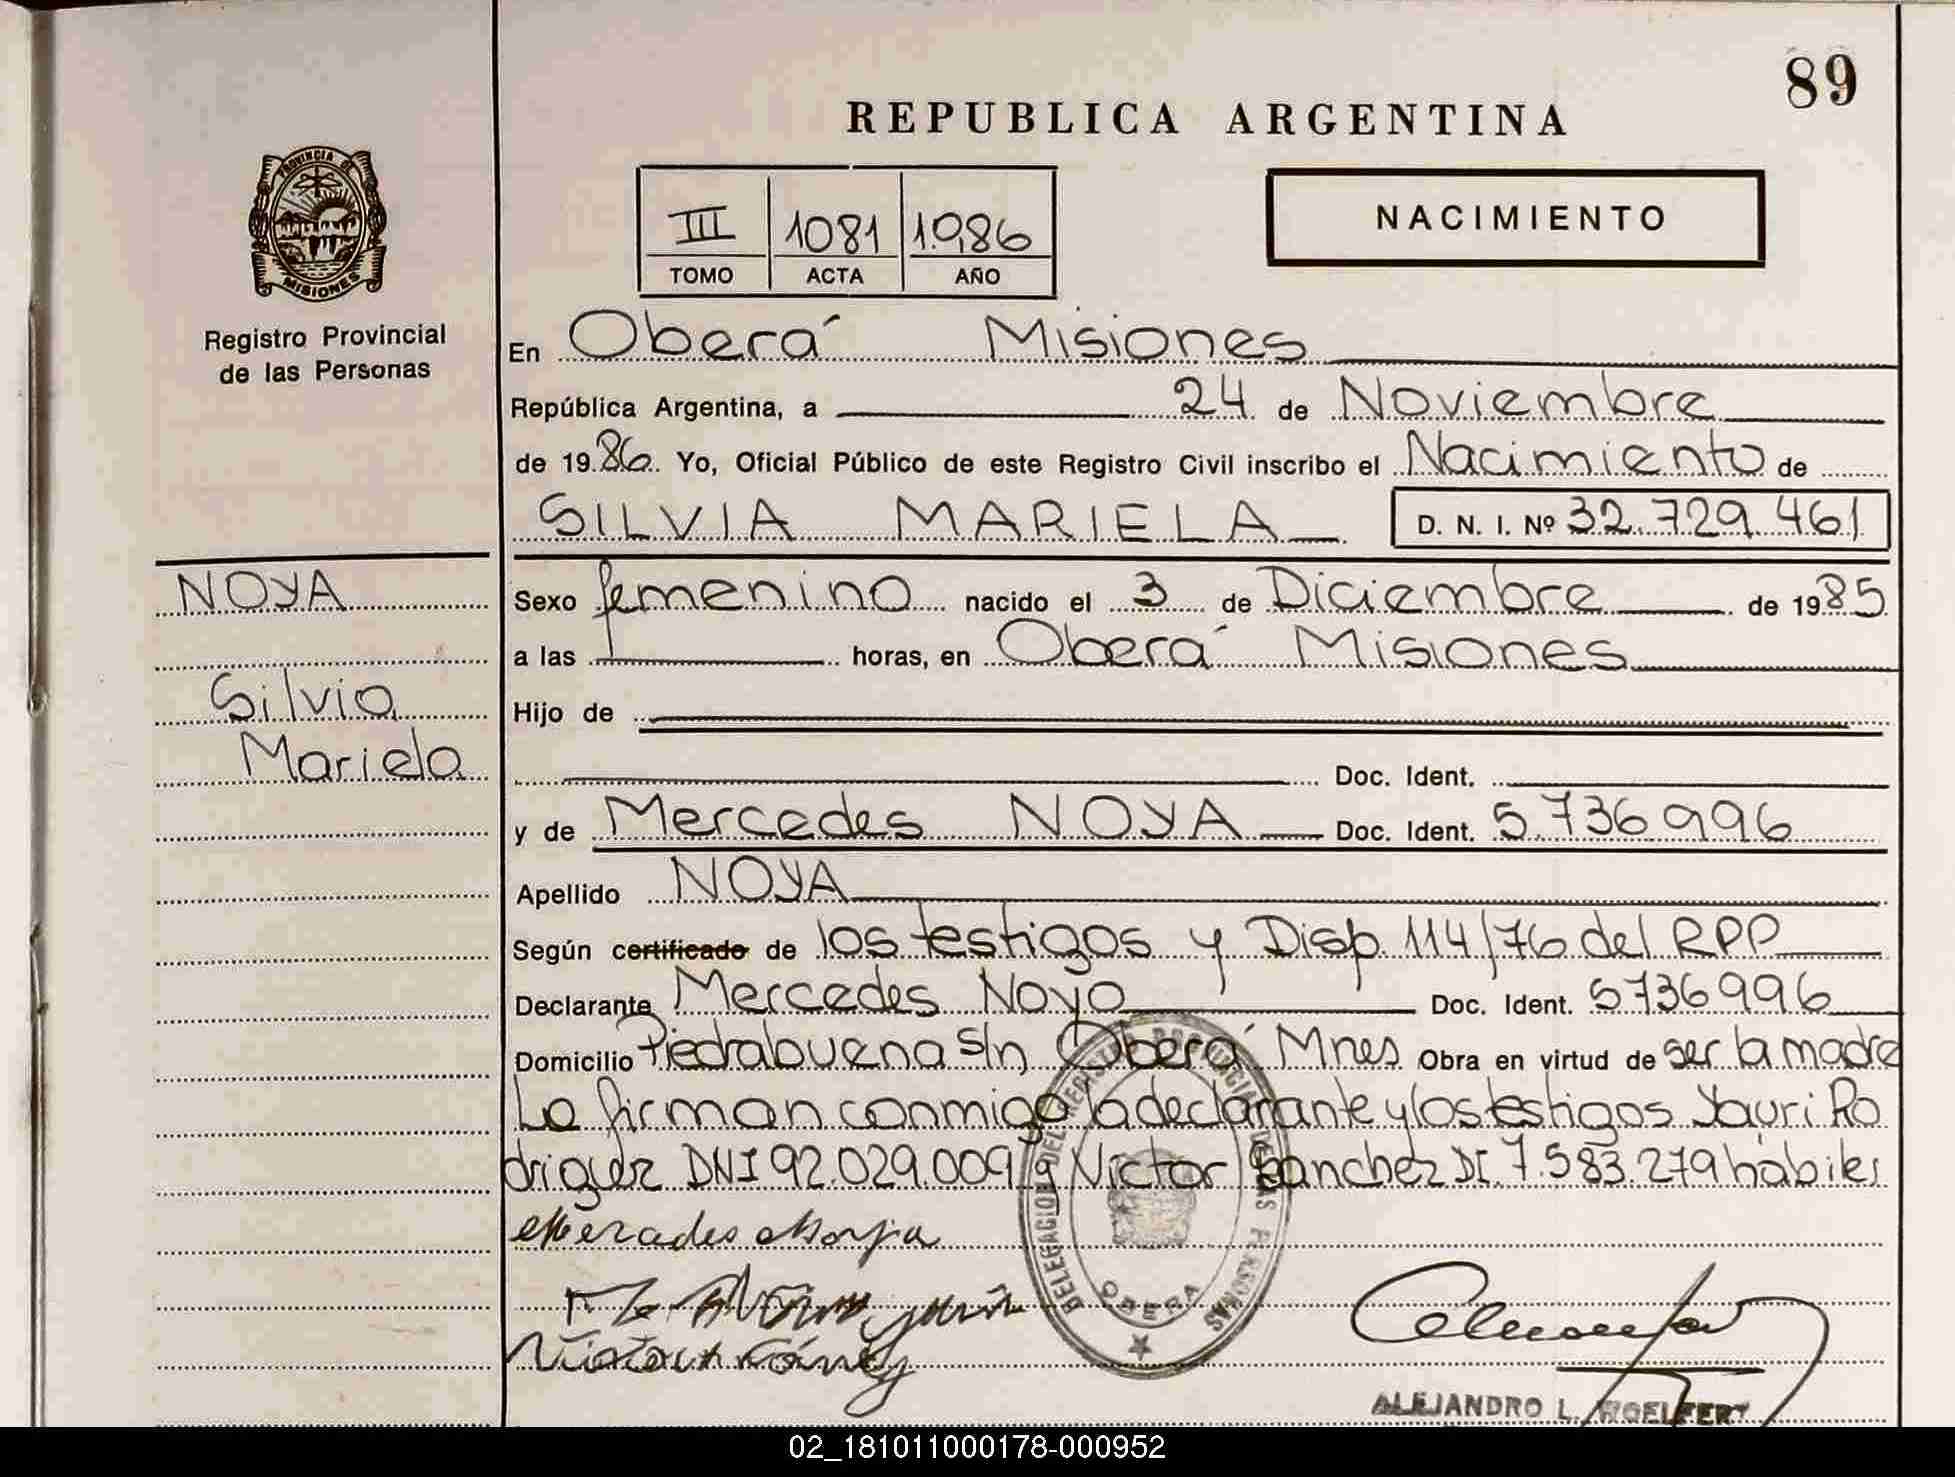 89
REPUBLICA ARGENTINA
PROVINCIA DE
MISIONES
Registro Provincial
de las Personas
III 1081 1.986
TOMO ACTA AÑO
NACIMIENTO
En Oberá Misiones
República Argentina, a 24 de Noviembre
de 1986. Yo, Oficial Público de este Registro Civil inscribo el Nacimiento de
SILVIA MARIELA D. N. I. Nº 32.729.461
NOYA
Silvia
Mariela
Sexo femenino nacido el 3 de Diciembre de 1985
a las horas, en Oberá Misiones
Hijo de
Doc. Ident.
y de Mercedes NOYA Doc. Ident. 5.736996
Apellido NOYA
Según certificado de los testigos y Disp. 114/76 del RPP
Declarante Mercedes Noya Doc. Ident. 5736996
Domicilio Piedrabuena S/n, Oberá Mnes Obra en virtud de ser la madre
La firman conmigo la declarante y los testigos Yauri Ro
driguez DNI 92.029.009 y Victor Sanchez DI. 7.583.279 hábiles
DELEGACION DEL REGISTRO PROVINCIAL DE LAS PERSONAS
OBERA
ALEJANDRO L.
02_181011000178-000952